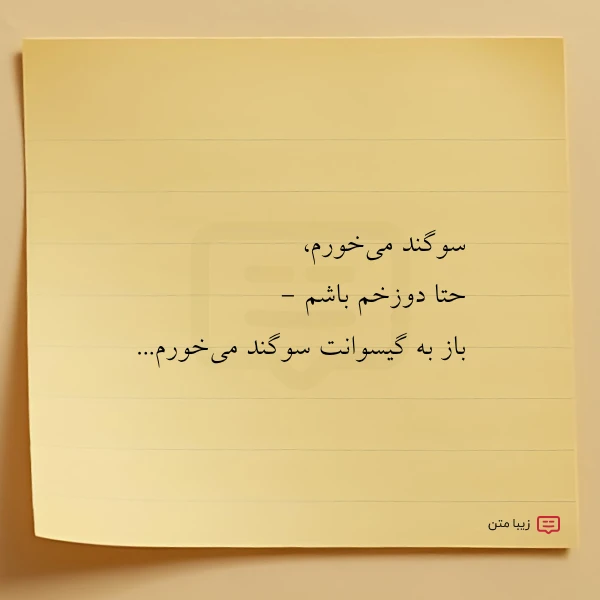 سوگند می‌خورم،
حتا دوزخم باشم –
باز به گیسوانت سوگند می‌خورم...
زیبا متن